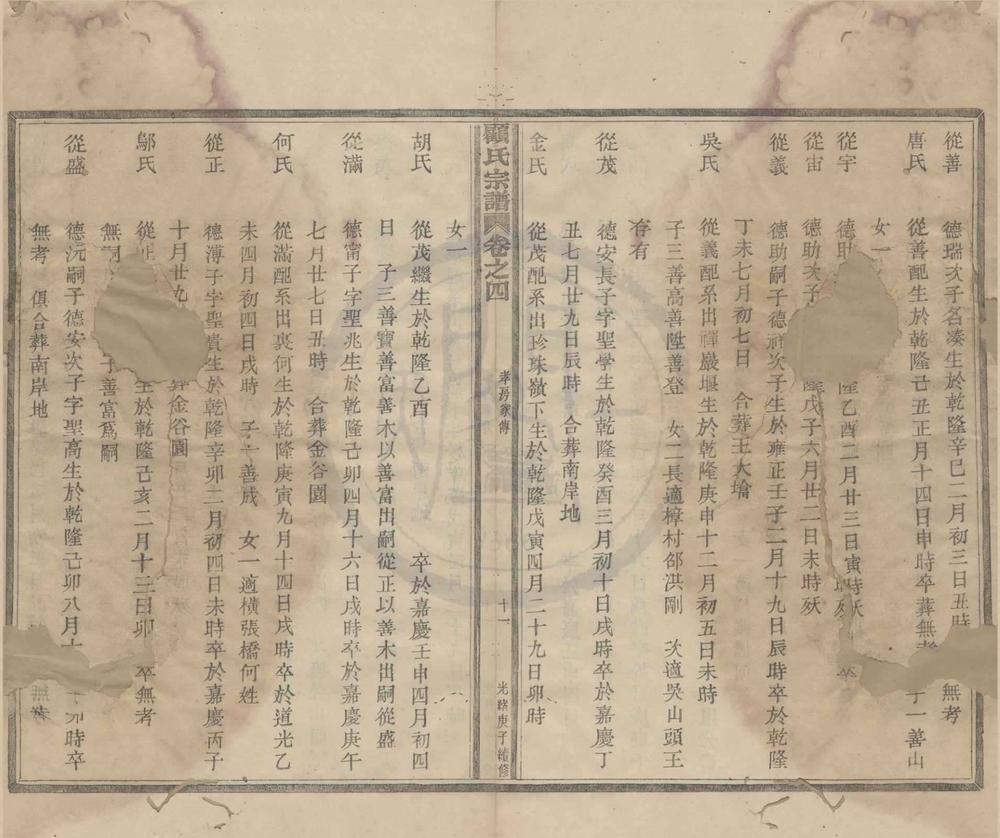 從善 德瑞次子名湊生於乾隆辛巳二月初三日丑時 無考
唐氏 從善配生於乾隆己丑正月十四日申時卒葬無考 子一善山
女一
從宇 德助 隆乙酉二月廿三日寅時殀
從宙 德助次子 隆戊子六月廿二日未時殀
從義 德助嗣子德祥次子生於雍正壬子二月十九日辰時卒於乾隆
丁未七月初七日 合葬王大墖
吳氏 從義配系出禪巖堰生於乾隆庚申十二月初五日未時
子三善高善陞善登 女二長適樟村邵洪剛 次適吳山頭王
存有
從茂 德安長子字聖學生於乾隆癸酉三月初十日戌時卒於嘉慶丁
丑七月廿九日辰時 合葬南岸地
金氏 從茂配系出珍珠嶺下生於乾隆戊寅四月二十九日卯時
顧氏宗譜 卷之四 孝房家傳 十一 光緒庚子續修
女一
胡氏 從茂繼生於乾隆乙酉 卒於嘉慶壬申四月初四
日 子三善寶善富善木以善富出嗣從正以善木出嗣從盛
從滿 德甯子字聖兆生於乾隆己卯四月十六日戌時卒於嘉慶庚午
七月廿七日丑時 合葬金谷園
何氏 從滿配系出裘何生於乾隆庚寅九月十四日戌時卒於道光乙
未四月初四日戌時 子一善成 女一適橫張橋何姓
從正 德溥子字聖貴生於乾隆辛卯二月初四日未時卒於嘉慶丙子
十月廿九 葬金谷園
鄔氏 從正 生於乾隆己亥二月十三日卯 卒無考
無嗣 子善富爲嗣
從盛 德沅嗣子德安次子字聖高生於乾隆己卯八月十 卯時卒
無考 俱合葬南岸地 無考